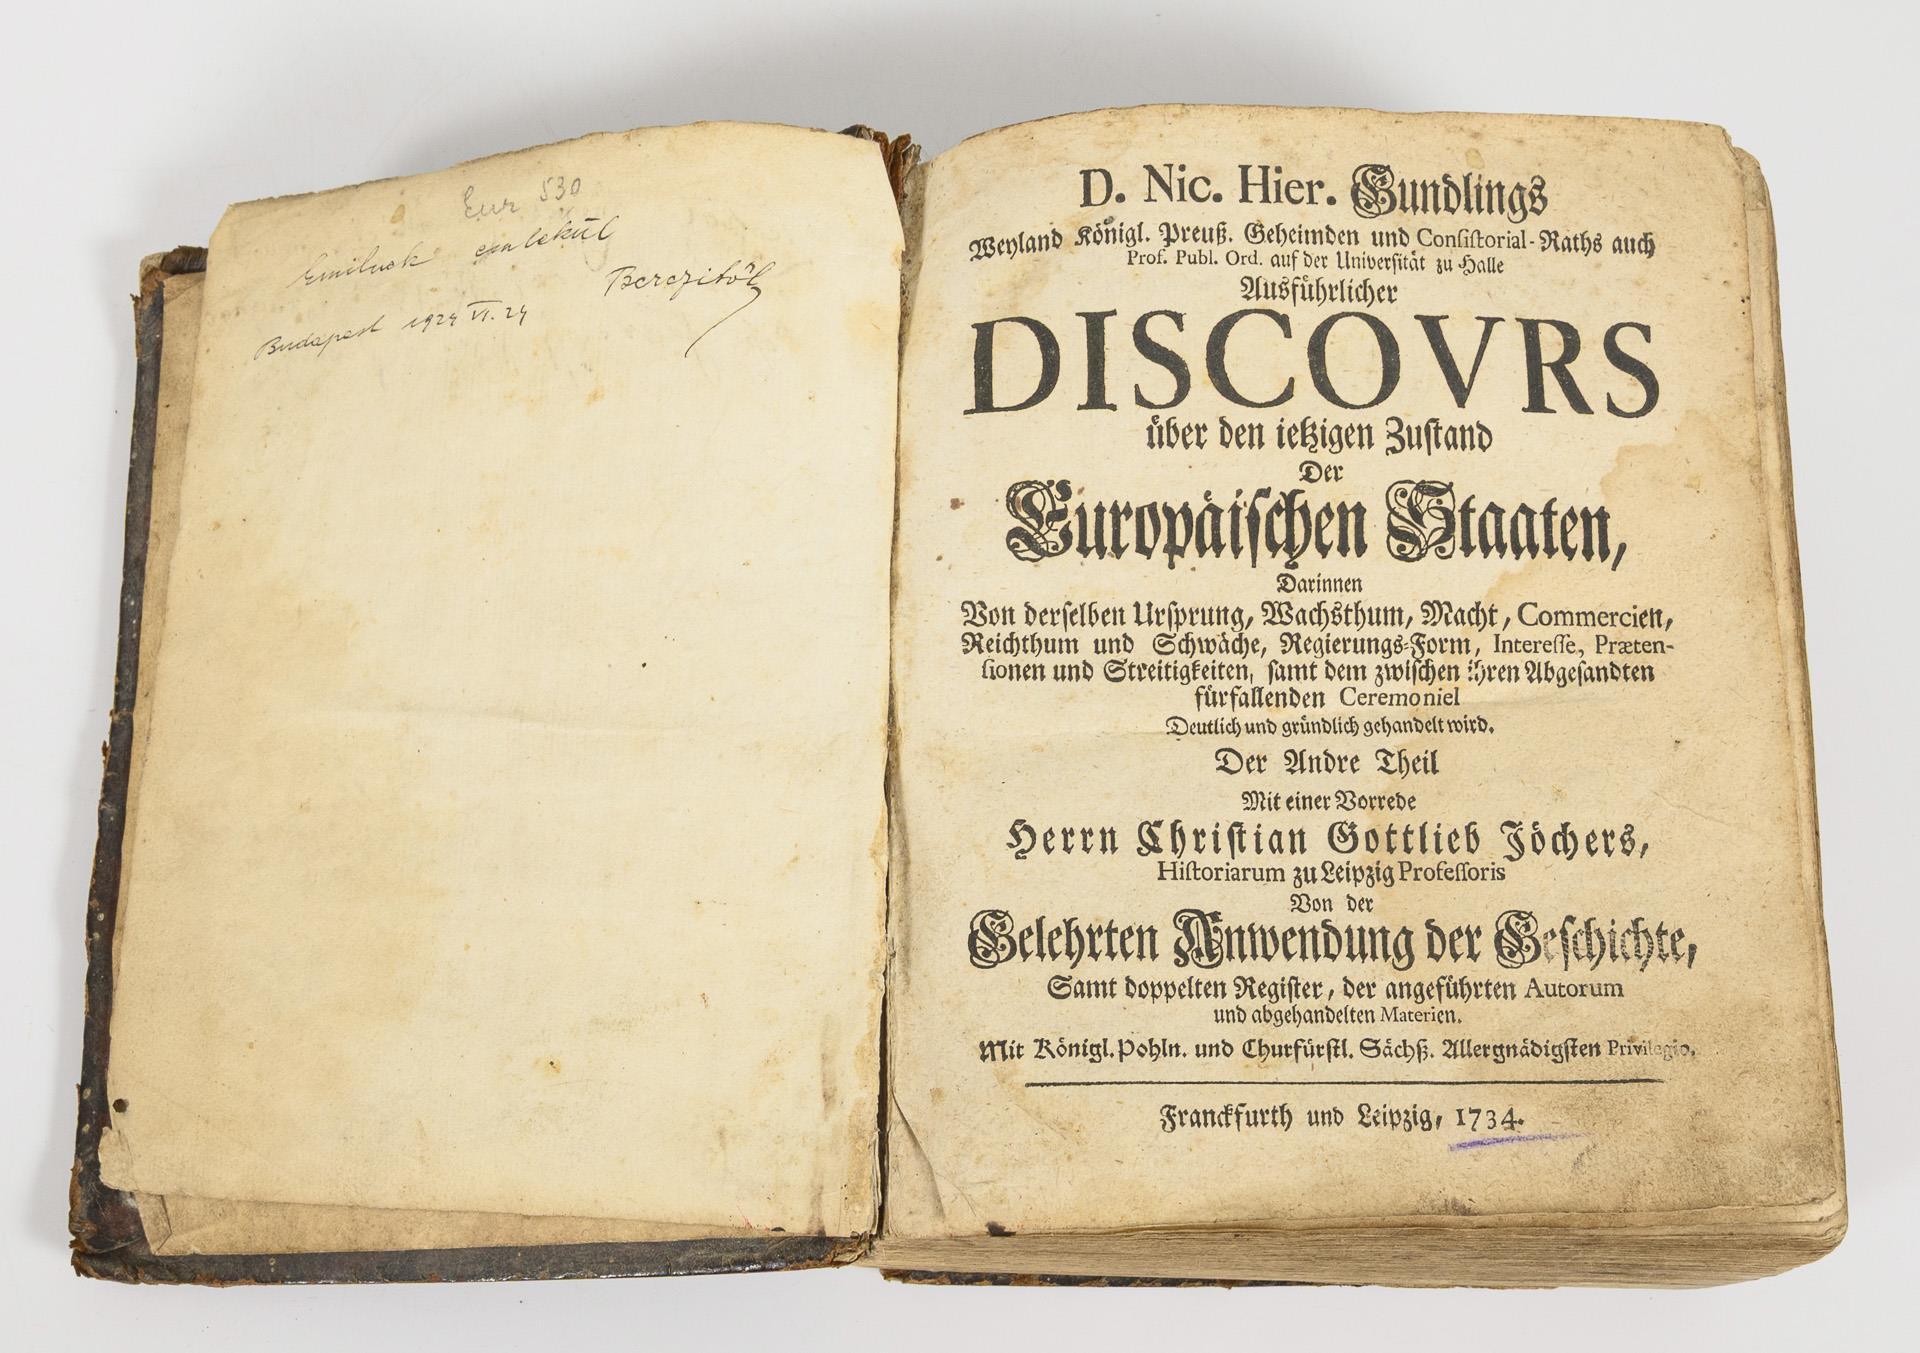 Eur 530
Emilnek emlekül
Berczitöl
Budapest 1924 VI. 24
D. Nic. Hier. Gundlings
Weyland Königl. Preuß. Geheimden und Consistorial-Raths auch
Prof. Publ. Ord. auf der Universität zu Halle
Ausführlicher
DISCOVRS
über den ietzigen Zustand
Der
Europäischen Staaten,
Darinnen
Von derselben Ursprung, Wachsthum, Macht, Commercien,
Reichthum und Schwäche, Regierungs-Form, Interesse, Præten-
sionen und Streitigkeiten, samt dem zwischen ihren Abgesandten
fürfallenden Ceremoniel
Deutlich und gründlich gehandelt wird.
Der Andre Theil
Mit einer Vorrede
Herrn Christian Gottlieb Jöchers,
Historiarum zu Leipzig Professoris
Von der
Gelehrten Anwendung der Geschichte,
Samt doppelten Register, der angeführten Autorum
und abgehandelten Materien.
Mit Königl. Pohln. und Churfürstl. Sächß. Allergnädigsten Privilegio.
Franckfurth und Leipzig, 1734.